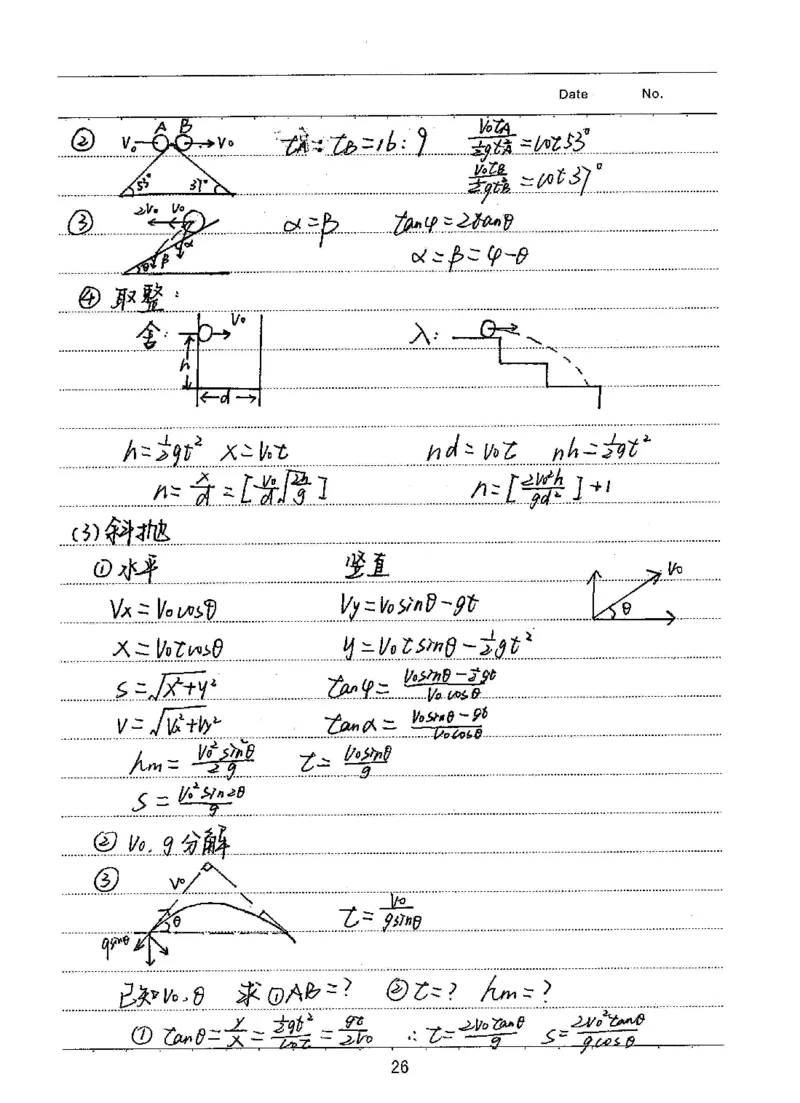 Date No.
② A B V₀ V₀ 53° 37° tA : tB = 16 : 9 V₀tA / ½gtA² = cot53°
V₀tB / ½gtB² = cot37°
③ 2V₀ V₀ α θ β φ α = β tanφ = 2tanθ
α = β = φ - θ
④ 取整:
舍: V₀ h d 入:
h = ½gt² x = V₀t nd = V₀t nh = ½gt²
n = x/d = [V₀/d √(2h/g)] n = [2V₀²h / gd²] + 1
(3) 斜抛
① 水平 竖直 V₀ θ
Vx = V₀cosθ Vy = V₀sinθ - gt
X = V₀tcosθ y = V₀tsinθ - ½gt²
s = √(x²+y²) tanφ = (V₀sinθ - ½gt) / V₀cosθ
V = √(Vx²+Vy²) tanα = (V₀sinθ - gt) / V₀cosθ
hm = V₀²sin²θ / 2g t = V₀sinθ / g
S = V₀²sin2θ / g
② V₀、g 分解
③ V₀ θ gsinθ t = V₀ / gsinθ
已知V₀、θ 求 ①AB=? ②t=? hm=?
① tanθ = y/x = ½gt² / V₀t = gt / 2V₀ ∴ t = 2V₀tanθ / g S = 2V₀²tanθ / gcosθ
26